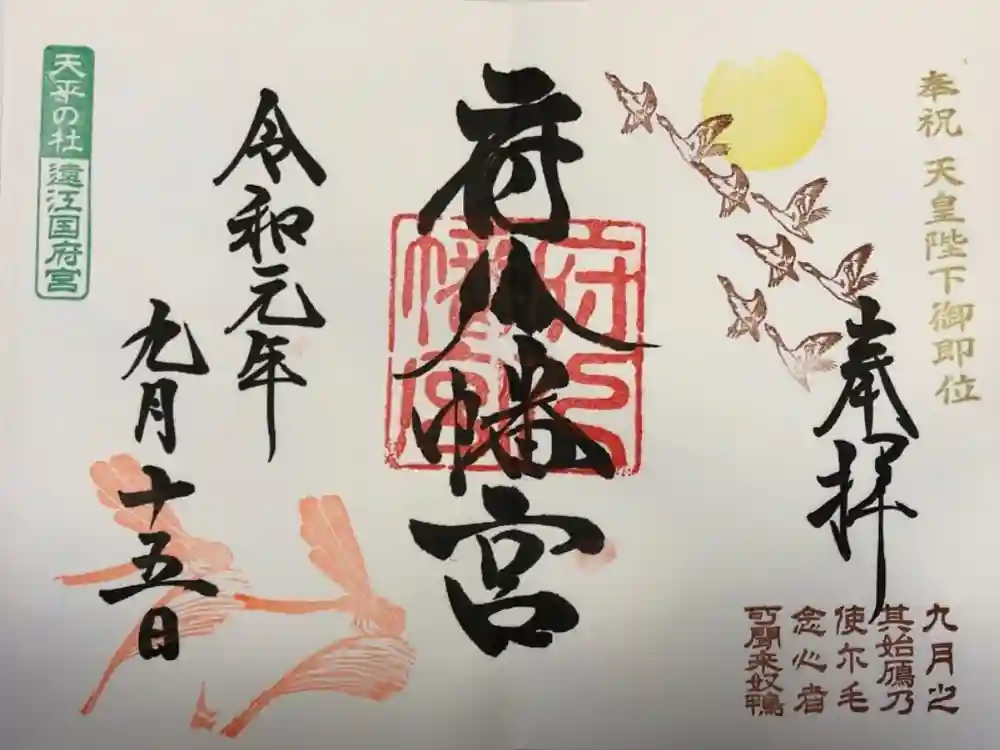 奉祝 天皇陛下御即位
奉拝
九月之
其始鴈乃
使尓毛
念心者
可聞来奴鴨
府八幡宮
府八
幡宮
令和元年
九月十五日
天平の社 遠江国府宮